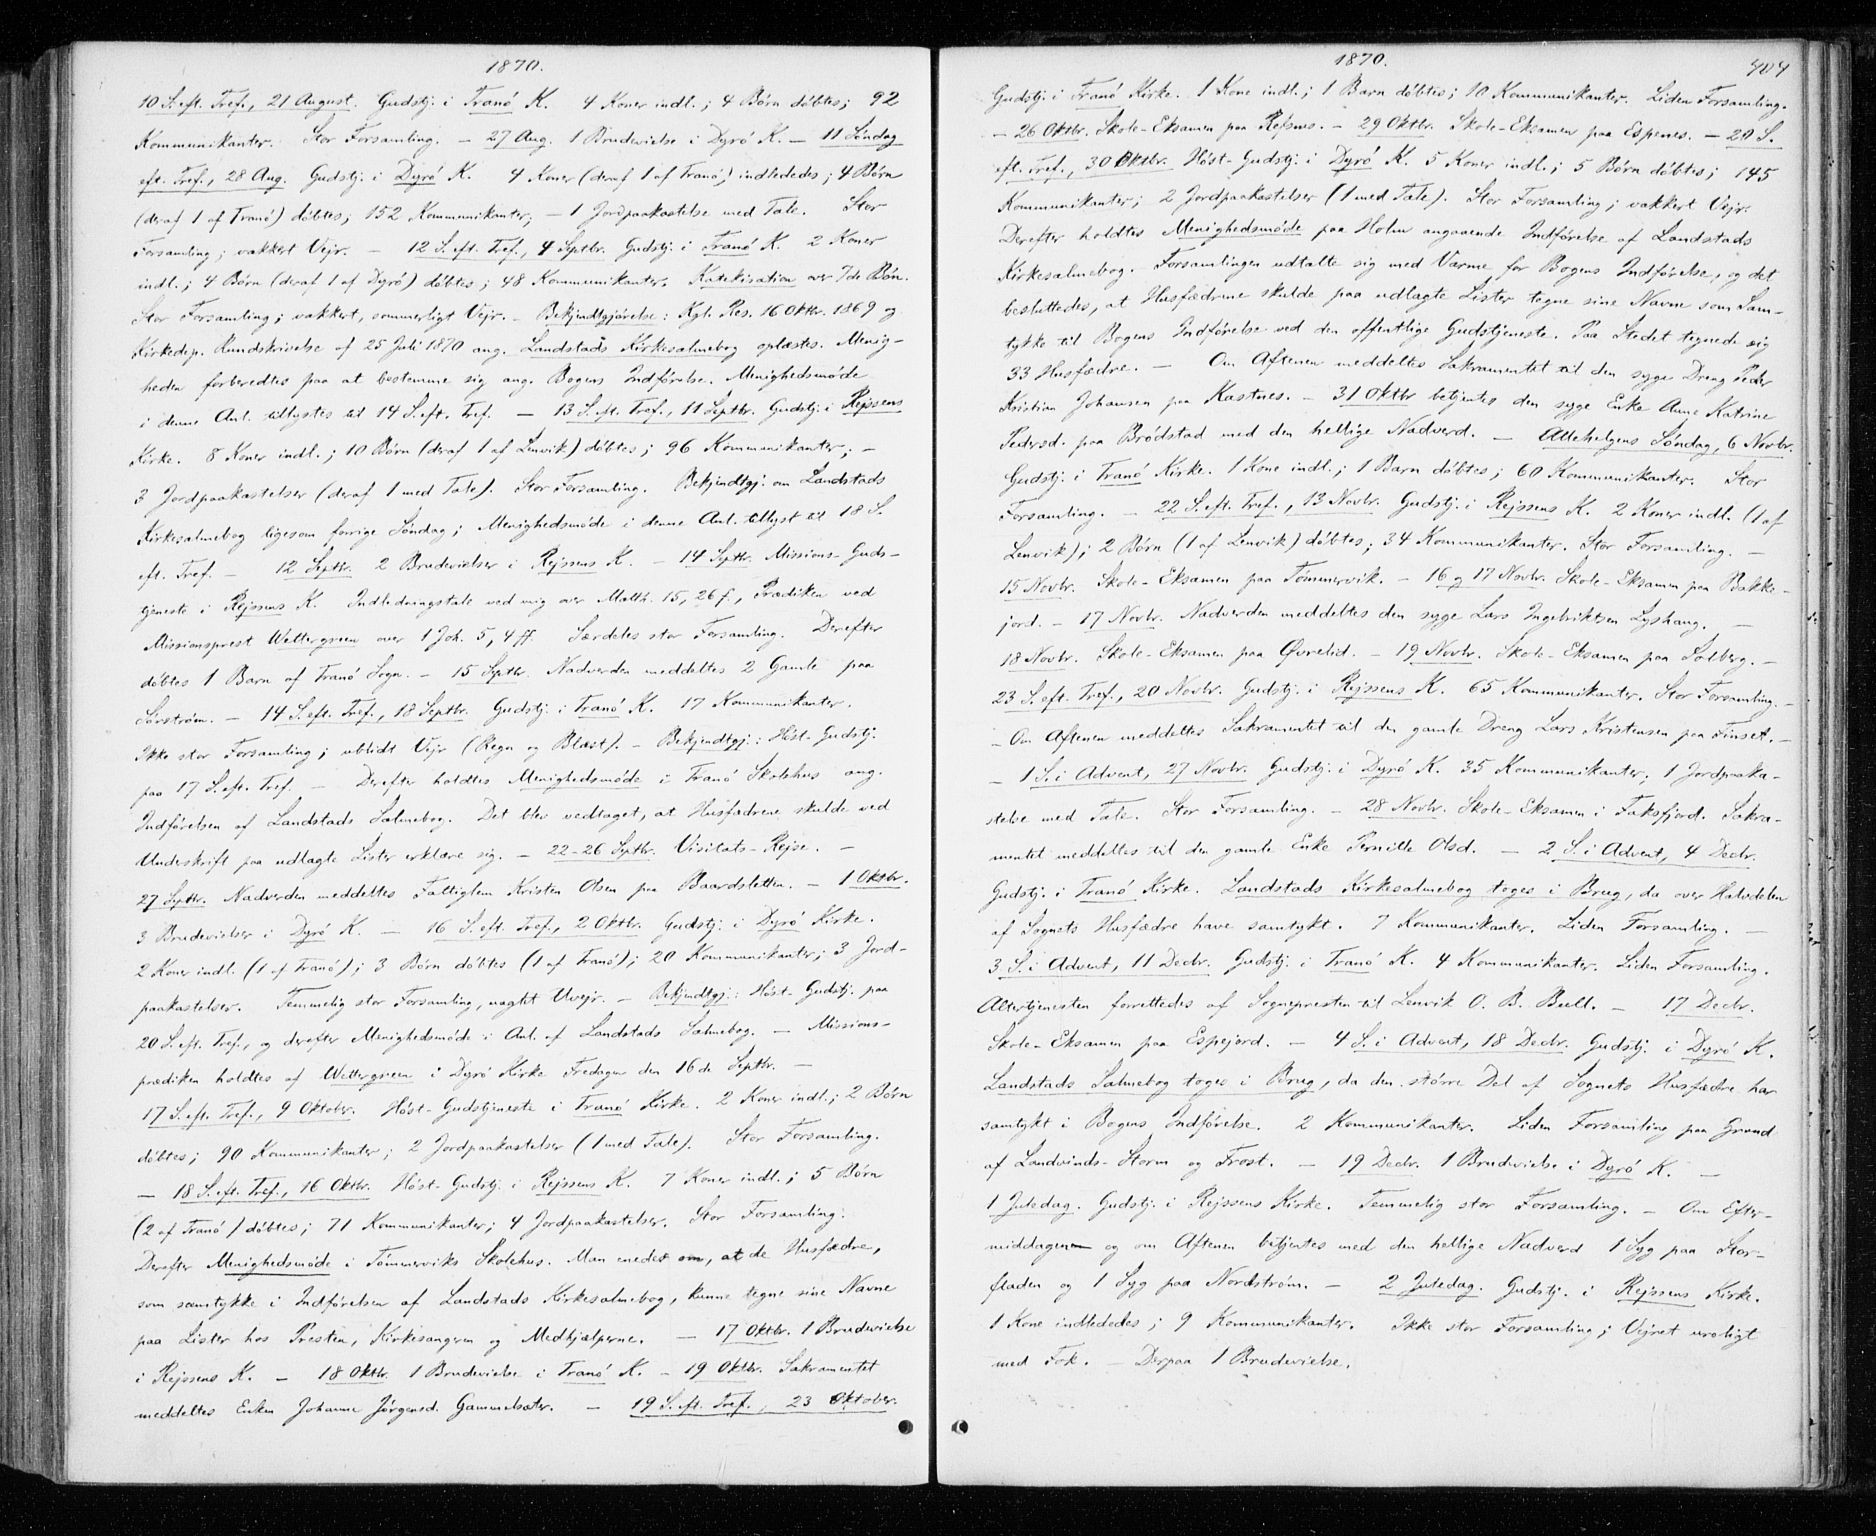 1870.
10 S. eft. Tref., 21 August. Gudstj. i Tranö K. 4 Koner indl.; 4 Børn döbtes; 92
Kommunikanter. Stor Forsamling. – 27 Aug. 1 Brudevielse i Dyrö K. – 11 Söndag
eft. Tref., 28 Aug. Gudstj. i Dyrö K. 4 Koner (deraf 1 af Tranö) indlededes; 4 Børn
(deraf 1 af Tranö) döbtes; 152 Kommunikanter; – 1 Jordpaakastelse med Tale. Stor
Forsamling; vakkert Vejr. – 12 S. eft. Tref., 4 Septbr. Gudstj. i Tranö K. 2 Koner
indl.; 4 Børn (deraf 1 af Dyrö) döbtes; 48 Kommunikanter. Katekisation over 7de Bön.
Stor Forsamling; vakkert, sommerligt Vejr. – Bekjendtgjörelse: Kgl. Res. 16 Oktbr. 1869 og
Kirkedep. Rundskrivelse af 25 Juli 1870 ang. Landstads Kirkesalmebog oplæstes. Menig-
heden forberedtes paa at bestemme sig ang. Bogens Indförelse. Menighedsmöde
i denne Anl. tillystes til 14 S. eft. Tref. – 13 S. eft. Tref., 11 Septbr. Gudstj. i Rejssens
Kirke. 8 Koner indl.; 10 Børn (deraf 1 af Lenvik) döbtes; 96 Kommunikanter; –
3 Jordpaakastelser (deraf 1 med Tale). Stor Forsamling. Bekjendtgj. om Landstads
Kirkesalmebog ligesom forrige Söndag; Menighedsmöde i denne Anl. tillyst til 18 S.
eft. Tref. – 12 Septbr. 2 Brudevielser i Rejssens K. – 14 Septbr. Missions-Guds-
tjeneste i Rejssens K. Indledningstale ved mig over Matth. 15, 26 f., Prædiken ved
Missionsprest Wettergreen over 1 Joh. 5, 4 ff. Særdeles stor Forsamling. Derefter
döbtes 1 Barn af Tranö Sogn. – 15 Septbr. Nadverden meddeltes 2 Gamle paa
Sørstrøm. – 14 S. eft. Tref., 18 Septbr. Gudstj. i Tranö K. 17 Kommunikanter.
Ikke stor Forsamling; ublidt Vejr (Regn og Blæst). – Bekjendtgj.: Höst-Gudstj.
paa 17 S. eft. Tref. – Derefter holdtes Menighedsmöde i Tranö Skolehus ang.
Indförelsen af Landstads Salmebog. Det blev vedtaget, at Husfædrene skulde ved
Underskrift paa udlagte Lister erklære sig. – 22-26 Septbr. Visitats-Rejse. –
27 Septbr. Nadverden meddeltes Fattiglem Kristen Olsen paa Baardsletten. – 1 Oktbr.
3 Brudevielser i Dyrö K. – 16 S. eft. Tref., 2 Oktbr. Gudstj. i Dyrö Kirke.
2 Koner indl. (1 af Tranö); 3 Børn döbtes (1 af Tranö); 20 Kommunikanter; 3 Jord-
paakastelser. Temmelig stor Forsamling, uagtet Uvejr. – Bekjendtgj.: Höst-Gudstj. paa
20 S. eft. Tref., og derefter Menighedsmöde i Anl. af Landstads Salmebog. – Missions-
prædiken holdtes af Wettergreen i Dyrö Kirke Fredagen den 16de Septbr. –
17 S. eft. Tref., 9 Oktober. Höst-Gudstjeneste i Tranö Kirke. 2 Koner indl.; 2 Børn
döbtes; 90 Kommunikanter; 2 Jordpaakastelser (1 med Tale). Stor Forsamling.
– 18 S. eft. Tref., 16 Oktbr. Höst-Gudstj. i Rejssens K. 7 Koner indl.; 5 Børn
(2 af Tranö) döbtes; 71 Kommunikanter; 4 Jordpaakastelser. Stor Forsamling.
Derefter Menighedsmöde i Tömmerviks Skolehus. Man enedes om, at de Husfædre,
som samtykke i Indförelsen af Landstads Kirkesalmebog, kunne tegne sine Navne
paa Lister hos Presten, Kirkesangeren og Medhjælperne. – 17 Oktbr. 1 Brudevielse
i Rejssens K. – 18 Oktbr. 1 Brudevielse i Tranö K. – 19 Oktbr. Sakramentet
meddeltes Enken Johanne Jörgensd. Gammelsæter. – 19 S. eft. Tref., 23 Oktober.
1870.
404
Gudstj. i Tranö Kirke. 1 Kone indl.; 1 Barn döbtes; 10 Kommunikanter. Liden Forsamling.
– 26 Oktbr. Skole-Eksamen paa Rejsnes. – 29 Oktbr. Skole-Eksamen paa Espenes. – 20 S.
eft. Tref., 30 Oktbr. Höst-Gudstj. i Dyrö K. 5 Koner indl.; 5 Børn döbtes; 145
Kommunikanter; 2 Jordpaakastelser (1 med Tale). Stor Forsamling; vakkert Vejr.
Derefter holdtes Menighedsmöde paa Holm angaaende Indförelse af Landstads
Kirkesalmebog. Forsamlingen udtalte sig med Varme for Bogens Indförelse, og det
besluttedes, at Husfædrene skulde paa udlagte Lister tegne sine Navne som Sam-
tykke til Bogens Indförelse ved den offentlige Gudstjeneste. Paa Stedet tegnede sig
33 Husfædre. – Om Aftenen meddeltes Sakramentet til den syge Dreng Peder
Kristian Johansen paa Kastnes. – 31 Oktbr betjentes den syge Enke Anne Katrine
Pedersd. paa Brödstad med den hellige Nadverd. – Allehelgens Söndag, 6 Novbr.
Gudstj. i Tranö Kirke. 1 Kone indl.; 1 Barn döbtes; 60 Kommunikanter. Stor
Forsamling. – 22 S. eft. Tref., 13 Novbr. Gudstj. i Rejssens K. 2 Koner indl. (1 af
Lenvik); 2 Børn (1 af Lenvik) döbtes; 34 Kommunikanter. Stor Forsamling. –
15 Novbr. Skole-Eksamen paa Tömmervik. – 16 og 17 Novbr. Skole-Eksamen paa Bakke-
jord. – 17 Novbr. Nadverden meddeltes den syge Lars Ingebriktsen Lyshaug. –
18 Novbr. Skole-Eksamen paa Øvrelid. – 19 Novbr. Skole-Eksamen paa Solberg. –
23 S. eft. Tref., 20 Novbr. Gudstj. i Rejssens K. 65 Kommunikanter. Stor Forsamling. –
– Om Aftenen meddeltes Sakramentet til den gamle Dreng Lars Kristensen paa Finset. –
– 1 S. i Advent, 27 Novbr. Gudstj. i Dyrö K. 35 Kommunikanter. 1 Jordpaaka-
stelse med Tale. Stor Forsamling. – 28 Novbr. Skole-Eksamen i Faksfjord. Sakra-
mentet meddeltes til den gamle Enke Pernille Olsd. – 2 S. i Advent, 4 Decbr.
Gudstj. i Tranö Kirke. Landstads Kirkesalmebog toges i Brug, da over Halvdelen
af Sognets Husfædre have samtykt. 7 Kommunikanter. Liden Forsamling. –
3 S. i Advent, 11 Decbr. Gudstj. i Tranö K. 4 Kommunikanter. Liden Forsamling.
Altertjenesten forrettedes af Sognepresten til Lenvik O. B. Bull. – 17 Decbr.
Skole-Eksamen paa Espejord. – 4 S. i Advent, 18 Decbr. Gudstj. i Dyrö K.
Landstads Salmebog toges i Brug, da den större Del af Sognets Husfædre har
samtykt i Bogens Indförelse. 2 Kommunikanter. Liden Forsamling paa Grund
af Landvinds-Storm og Frost. – 19 Decbr. 1 Brudevielse i Dyrö K. –
1 Juledag. Gudstj. i Rejssens Kirke. Temmelig stor Forsamling. – Om Efter-
middagen og om Aftenen betjentes med den hellige Nadverd 1 Syg paa Stor-
fladen og 1 Syg paa Nordström. – 2 Juledag. Gudstj. i Rejssens Kirke.
1 Kone indlededes; 9 Kommunikanter. Ikke stor Forsamling; Vejret uroligt
med Fok. – Derpaa 1 Brudevielse.